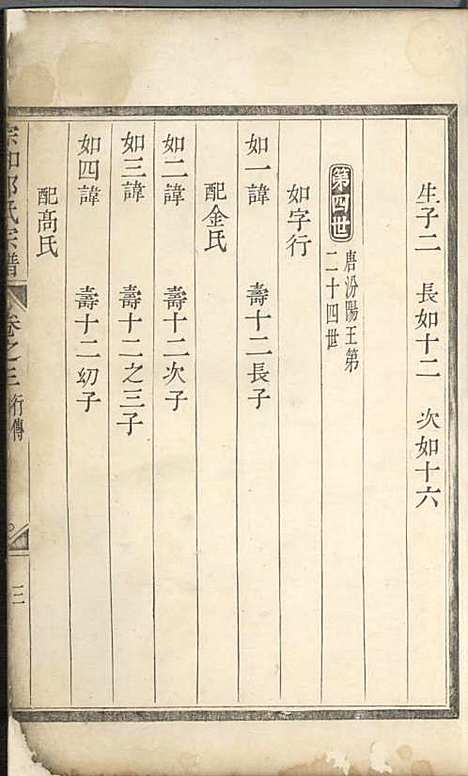 生子二　長如十二　次如十六
第四世　唐汾陽王第
二十四世
如字行
如一諱　壽十二長子
配金氏
如二諱　壽十二次子
如三諱　壽十二之三子
如四諱　壽十二幼子
配高氏
氏宗譜　卷之三　行傳　三